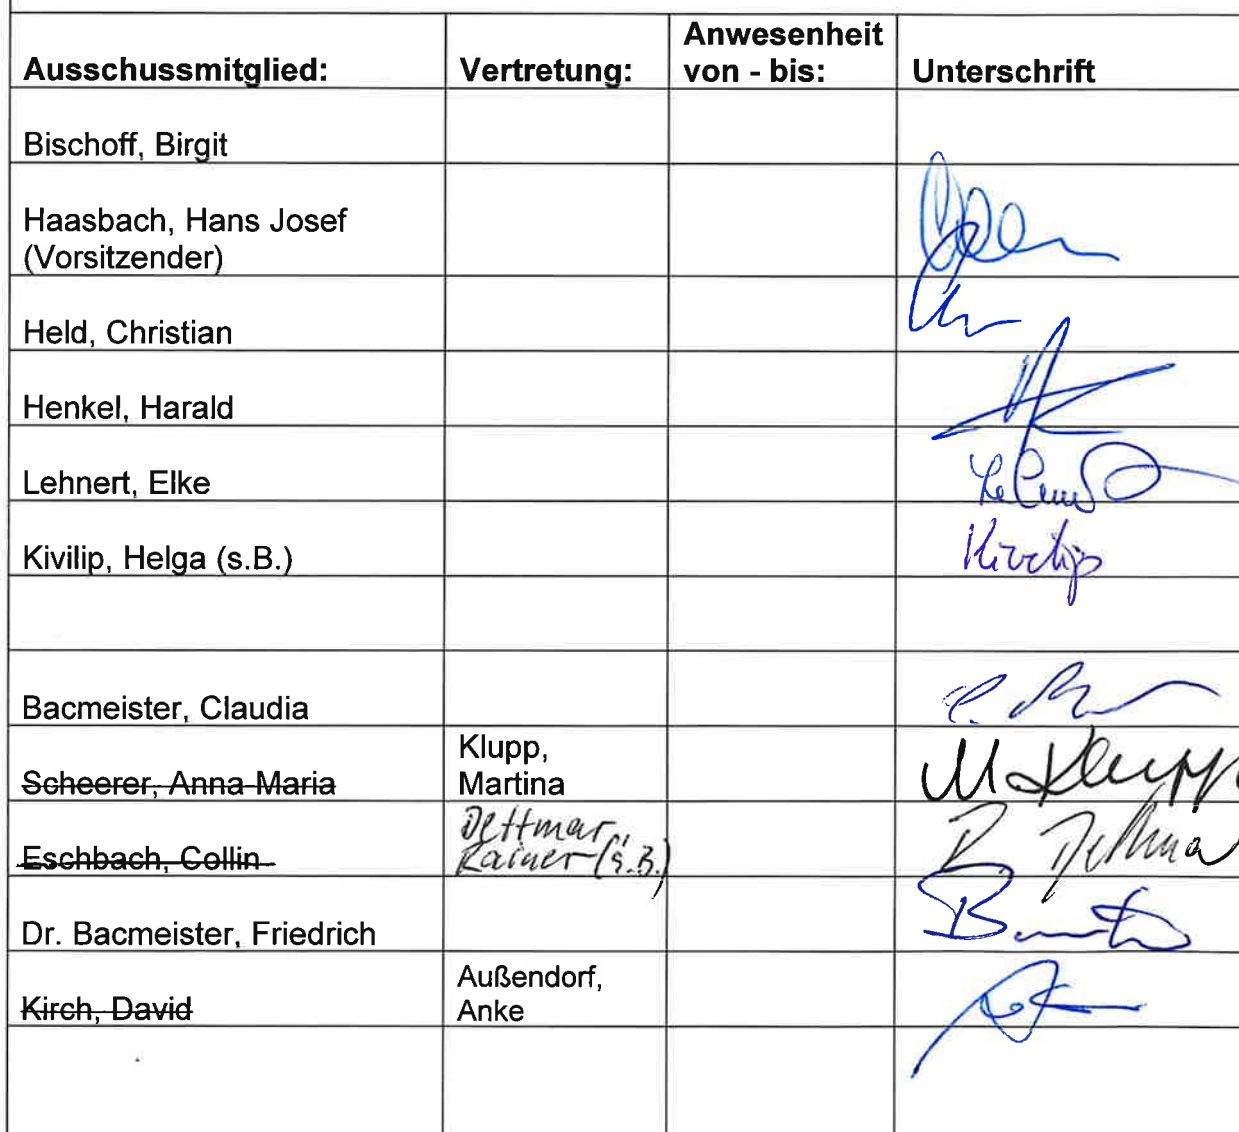 Ausschussmitglied: Vertretung: Anwesenheit von - bis: Unterschrift
Bischoff, Birgit
Haasbach, Hans Josef
(Vorsitzender)
Held, Christian
Henkel, Harald
Lehnert, Elke
Kivilip, Helga (s.B.) Kivilip
Bacmeister, Claudia
Klupp,
Scheerer, Anna-Maria Martina M. Klupp
Dettmar,
Eschbach, Collin Rainer (s.B.) R. Dettmar
Dr. Bacmeister, Friedrich
Außendorf,
Kirch, David Anke